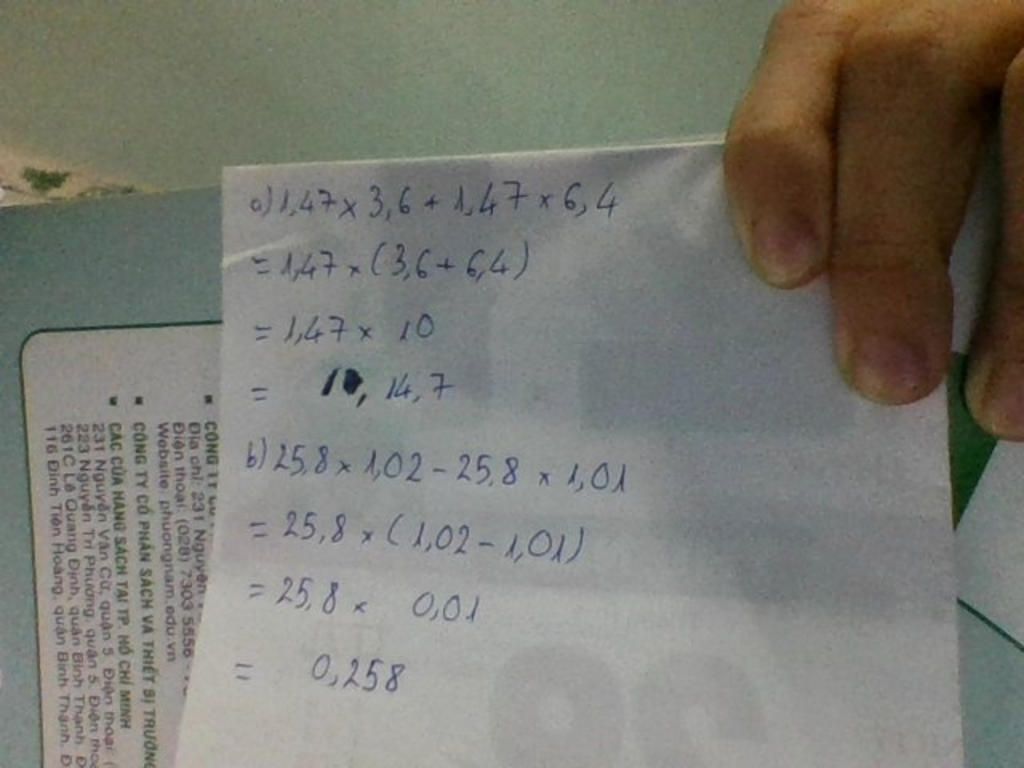 a) 1,47 × 3,6 + 1,47 × 6,4
= 1,47 × (3,6 + 6,4)
= 1,47 × 10
= 14,7
b) 25,8 × 1,02 - 25,8 × 1,01
= 25,8 × (1,02 - 1,01)
= 25,8 × 0,01
= 0,258
CÔNG TY
Địa chỉ: 231 Nguyễn
Điện thoại: (028) 7303 5556
Website: phuongnam.edu.vn
CÔNG TY CỔ PHẦN SÁCH VÀ THIẾT BỊ TRƯỜNG
CÁC CỬA HÀNG SÁCH TẠI TP. HỒ CHÍ MINH
231 Nguyễn Văn Cừ, quận 5. Điện thoại: (
223 Nguyễn Tri Phương, quận 5. Điện tho
261C Lê Quang Định, quận Bình Thạnh. Đ
116 Đinh Tiên Hoàng, quận Bình Thạnh. Đ